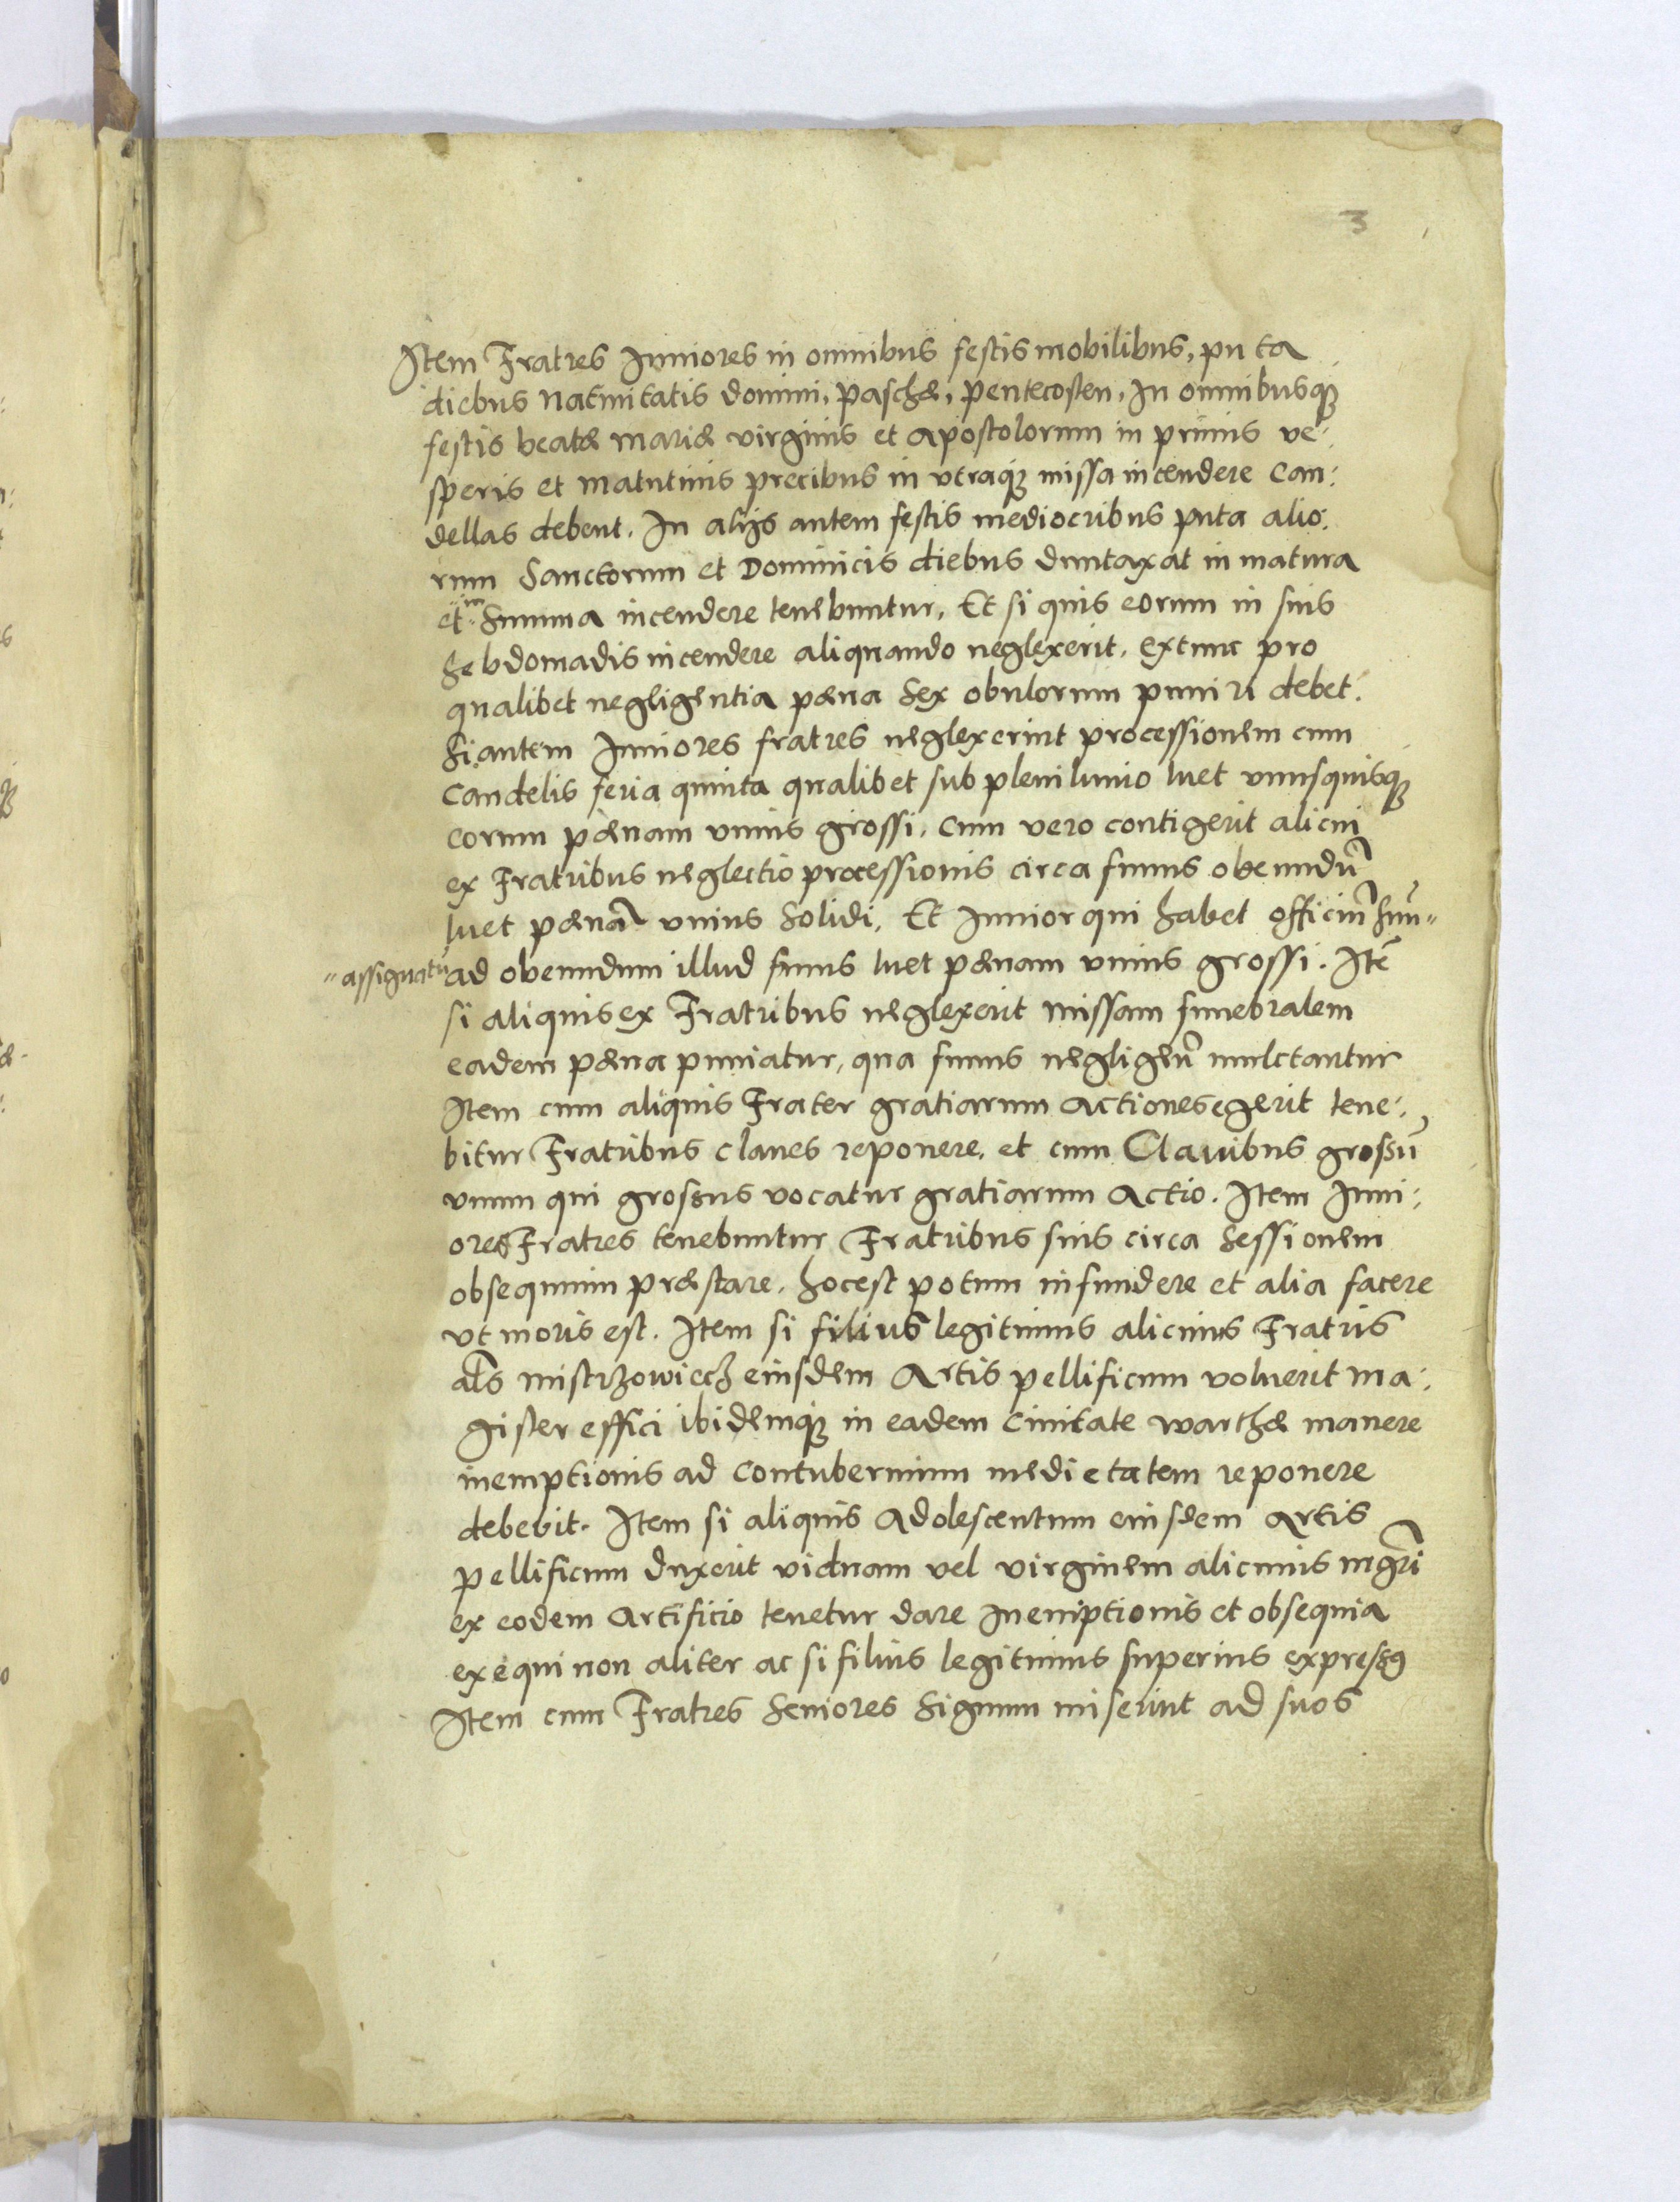 3
Item Fratres Iuniores in omnibus festis mobilibus, puta
diebus natiuitatis domini, paschæ, pentecosten, In omnibusq;
festis beatæ mariæ virginis et apostolorum in primis ve-
speris et matutinis precibus in vtraq; missa incendere Can:
dellas debent. In alijs autem festis mediocribus puta alio:
rum Sanctorum et Dominicis diebus duntaxat in matura
et in Summa incendere tenebuntur, Et si quis eorum in suis
hebdomadis incendere aliquando neglexerit, extunc pro
qualibet negligentia pæna sex obulorum puniri debet.
Si autem Iuniores fratres neglexerint processionem cum
Candelis feria quinta qualibet sub plenilunio luet vnusquisq;
eorum pænam vnius grossi, Cum vero contigerit alicui
ex Fratribus neglectio processionis circa funus obeundū
luet pænā vnius solidi, Et Iunior qui habet officiū suū "
" assignatū ad obeundum illud funus luet pænam vnius grossi. Itē
si aliquis ex Fratribus neglexerit missam funebralem
eadem pæna puniatur, qua funus negligen̄ mulctantur
Item cum aliquis Frater gratiarum actiones egerit tene:
bitur Fratribus claues reponere, et cum Clauibus grossū
vnum qui grossus vocatur gratiarum actio. Item Iuni:
ores Fratres tenebuntur Fratribus suis circa sessionem
obsequium præstare, hocest potum infundere et alia facere
vt moris est. Item si filius legitimus alicuius Fratris
als mistrzowiecz eiusdem Artis pellificum voluerit ma:
gister effici ibidemq; in eadem Ciuitate warthæ manere
inemptionis ad contubernium medietatem reponere
debebit. Item si aliquis Adolescentum eiusdem artis
pellificum duxerit viduam vel virginem alicuius mgr̄i
ex eodem artificio tenetur dare Inemptionis et obsequia
exequi non aliter ac si filius legitimus superius expressꝯ
Item cum Fratres Seniores Signum miserint ad suos